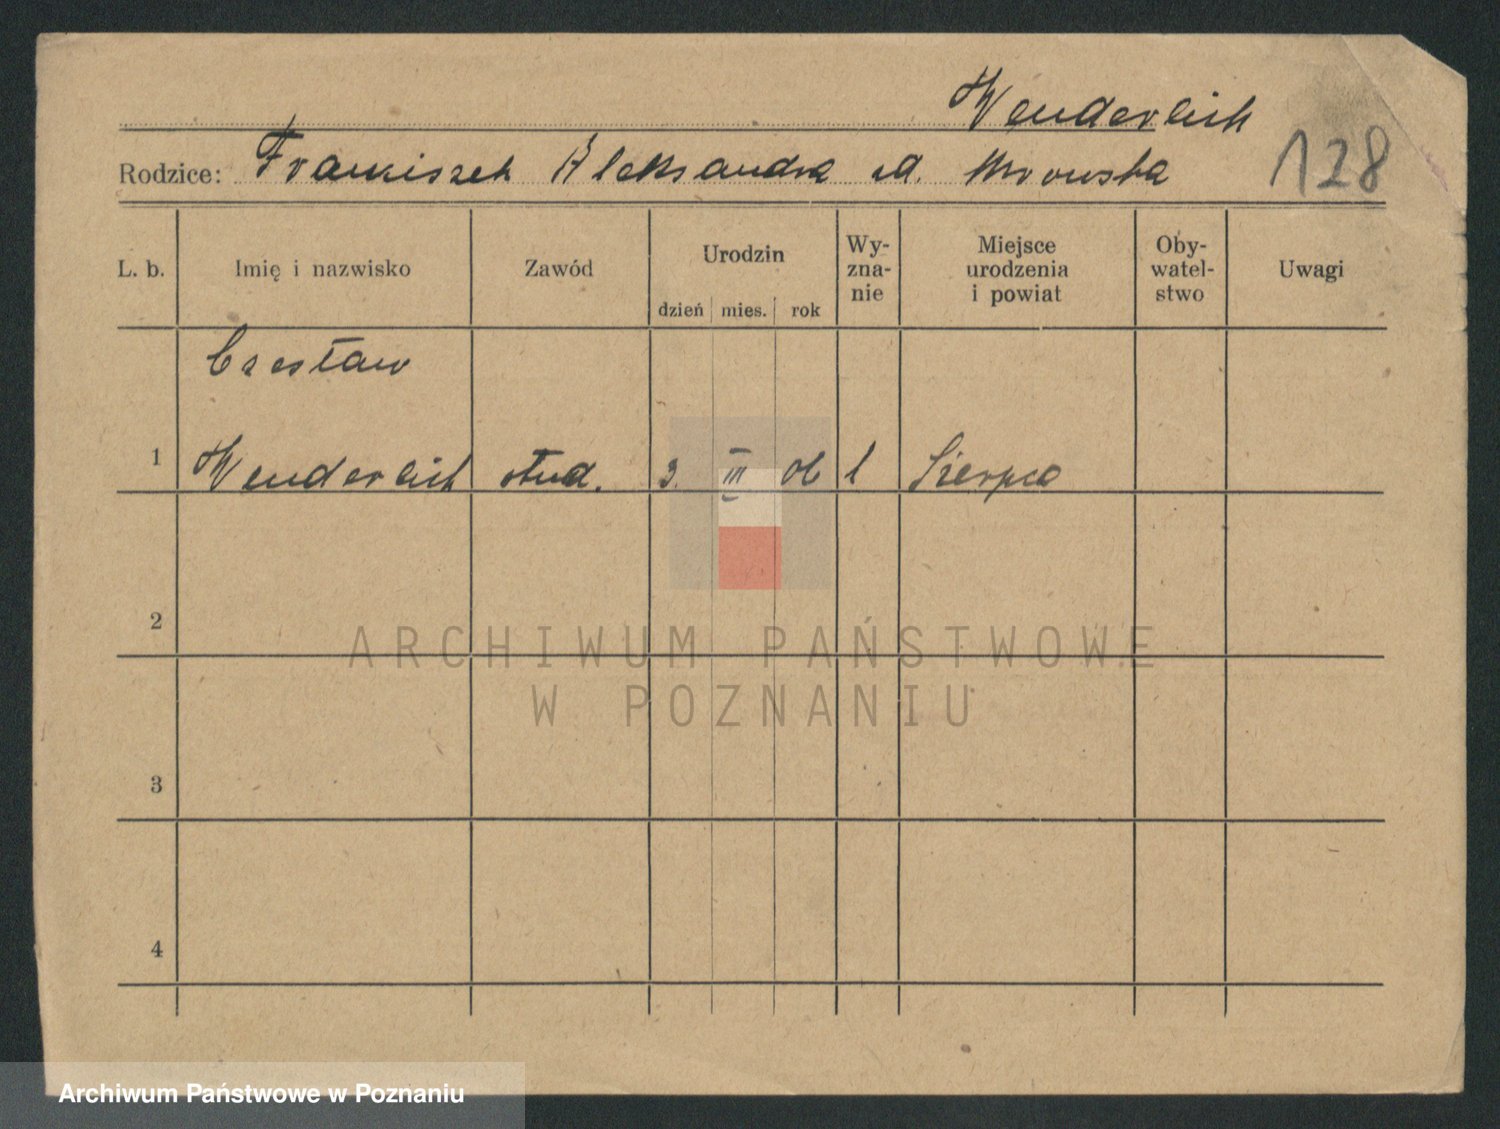 Wenderlich
Rodzice: Franciszek Aleksandra
128
L. b. Imię i nazwisko Zawód Urodzin dzień mies. rok Wy-zna-nie Miejsce urodzenia i powiat Oby-watel-stwo Uwagi
Czesław
1 Wenderlich stud. 3. III 06 Sierpca
2
ARCHIWUM PAŃSTWOWE
W POZNANIU
3
4
Archiwum Państwowe w Poznaniu